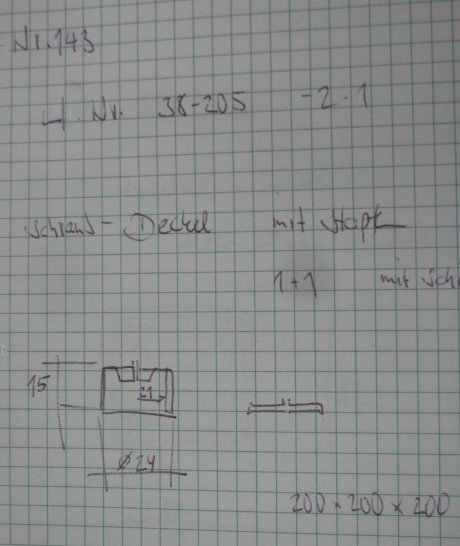 Nr. 143
4. Nr. 38-205 -2.1
Schraub-Deckel mit
1+1 mit
15
21
Ø 24
200 × 200 × 200